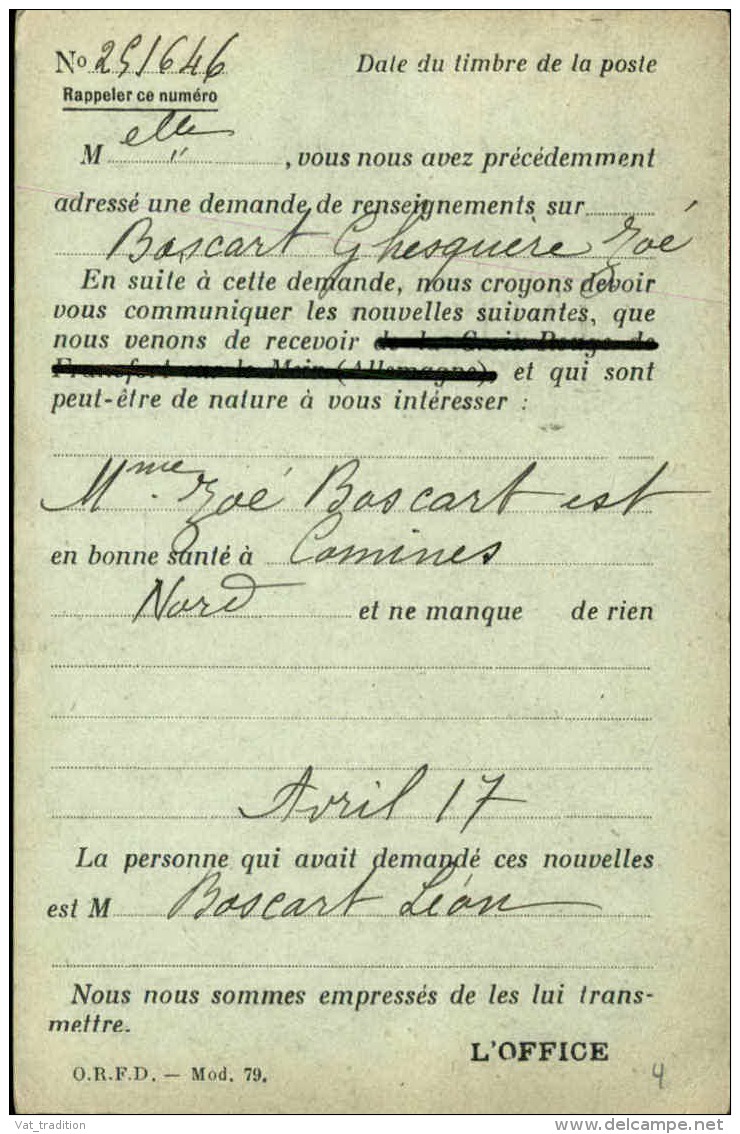 No 251646 Date du timbre de la poste
Rappeler ce numéro
M elle " , vous nous avez précédemment
adressé une demande de renseignements sur
Boscart Ghesquière Zoé
En suite à cette demande, nous croyons devoir
vous communiquer les nouvelles suivantes, que
nous venons de recevoir de la Croix-Rouge de
Francfort sur le Mein (Allemagne), et qui sont
peut-être de nature à vous intéresser :
Mme Zoé Boscart est
en bonne santé à Comines
Nord et ne manque de rien
Avril 17
La personne qui avait demandé ces nouvelles
est M Boscart Léon
Nous nous sommes empressés de les lui trans-
mettre.
L'OFFICE
O.R.F.D. — Mod. 79.
4
Vat_tradition
delcampe.net